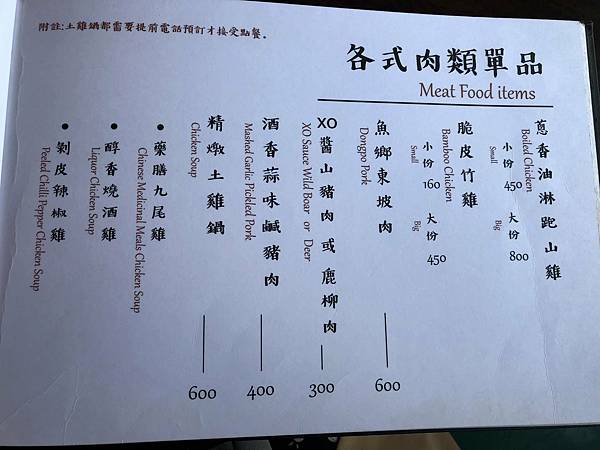 附註:土雞鍋都需要提前電話預訂才接受點餐。
各式肉類單品
Meat Food items
蔥香油淋跑山雞
Boiled Chicken
小份 450 大份 800
Small Big
脆皮竹雞
Bamboo Chicken
小份 160 大份 450
Small Big
魚鄉東坡肉 600
Dongpo Pork
XO醬山豬肉或鹿柳肉 300
XO Sauce Wild Boar or Deer
酒香蒜味鹹豬肉 400
Mashed Garlic Pickled Pork
精燉土雞鍋 600
Chicken Soup
● 藥膳九尾雞
Chinese Medicinal Meals Chicken Soup
● 醇香燒酒雞
Liquor Chicken Soup
● 剝皮辣椒雞
Peeled Chilli Pepper Chicken Soup